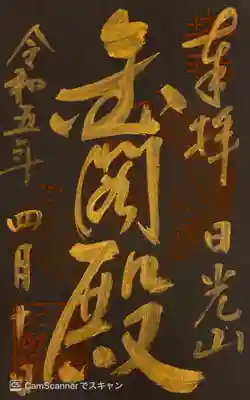 奉拝 日光山
金閣殿
令和五年 四月十日
CamScannerでスキャン